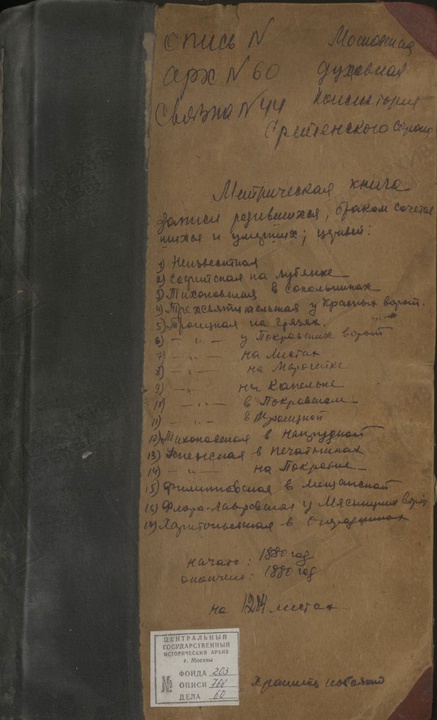 опись N
арх N 60
Связка N 44
Московская
духовная
консистория
Сретенского сорока
Метрическая книга
записи родившихся, браком сочета
шихся и умерших; церквей:
1) Неизвестная
2) Софийская на Лубянке
3) Тихоновская в Сокольниках
4) Трехсвятительская у Красных ворот.
5) Троицкая на Грязях.
6) — " — у Покровских ворот
7) — " — на Листах
8) — " — на Маросейке
9) — " — на Капельке
10) — " — в Покровском
11) — " — в Троицкой
12) Трифоновская в Напрудной
13) Успенская в Печатниках
14) — " — на Покровке
15) Филипповская в Мещанской
16) Флоро-Лавровская у Мясницких ворот
17) Харитоньевская в Огородниках
начато: 1880 год
окончено: 1880 год
на листах
ЦЕНТРАЛЬНЫЙ
ГОСУДАРСТВЕННЫЙ
ИСТОРИЧЕСКИЙ АРХИВ
г. Москвы
№
ФОНДА 203
ОПИСИ
ДЕЛА 60
Хранить